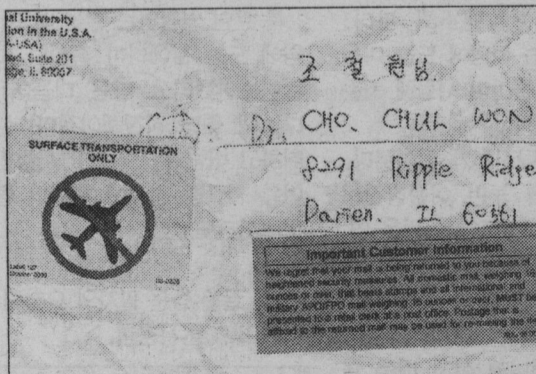 al University
ion in the U.S.A.
-USA)
Suite 201
IL 60007
조 철 원님.
Dr. CHO. CHUL WON
8291 Ripple Ridge
Darien. IL 60561
SURFACE TRANSPORTATION
ONLY
Label 127
Important Customer Information
We regret that your mail is being returned to you because of
heightened security measures. All domestic mail, weighing 16
ounces or over, that bears stamps and all international and
military APO/FPO mail weighing 16 ounces or over, MUST be
presented to a retail clerk at a post office. Postage that is
affixed to the returned mail may be used for re-mailing the